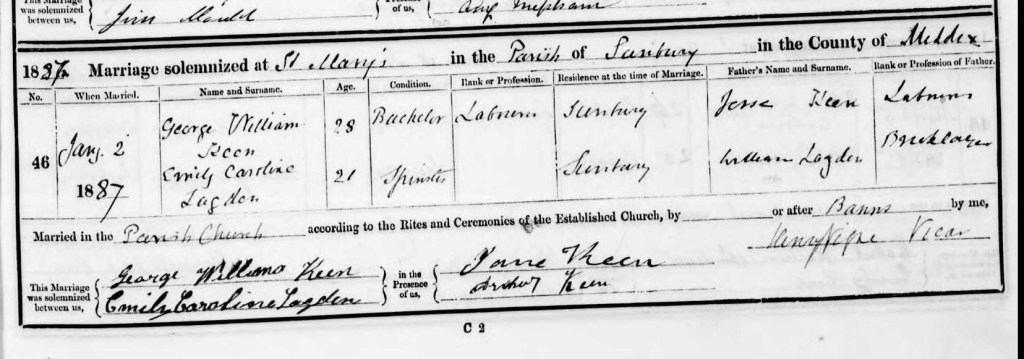 This Marriage
was solemnized
between us,
Presence
of us,
1887 Marriage solemnized at St Mary's in the Parish of Sunbury in the County of Middex
No. When Married. Name and Surname. Age. Condition. Rank or Profession. Residence at the time of Marriage. Father's Name and Surname. Rank or Profession of Father.
46 Jany. 2 1887 George William Keen 28 Bachelor Labourer Sunbury Jesse Keen Labourer
Emily Caroline Lagden 21 Spinster Sunbury William Lagden Bricklayer
Married in the Parish Church according to the Rites and Ceremonies of the Established Church, by or after Banns by me,
Vicar
This Marriage was solemnized between us, George William Keen in the Presence of us, Jane Keen
Emily Caroline Lagden Keen
C 2